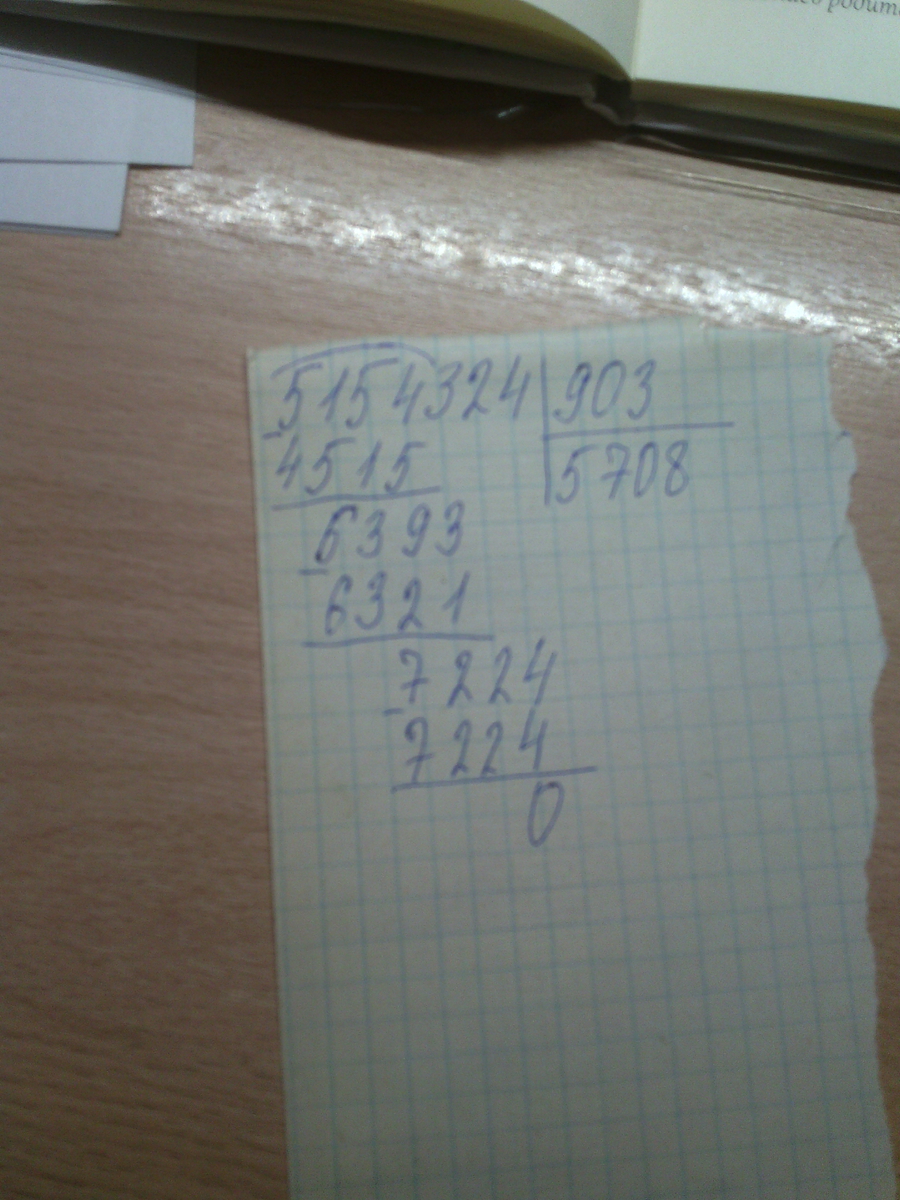 5154324 903
4515 5708
6393
6321
7224
7224
0